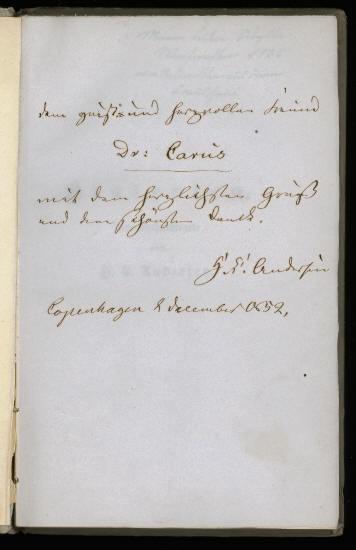 dem geist- und herzvollen Freund
Dr: Carus
mit dem herzlichsten Gruß
und dem schönsten Danck.
H. C. Andersen
Copenhagen 2 december 1852.